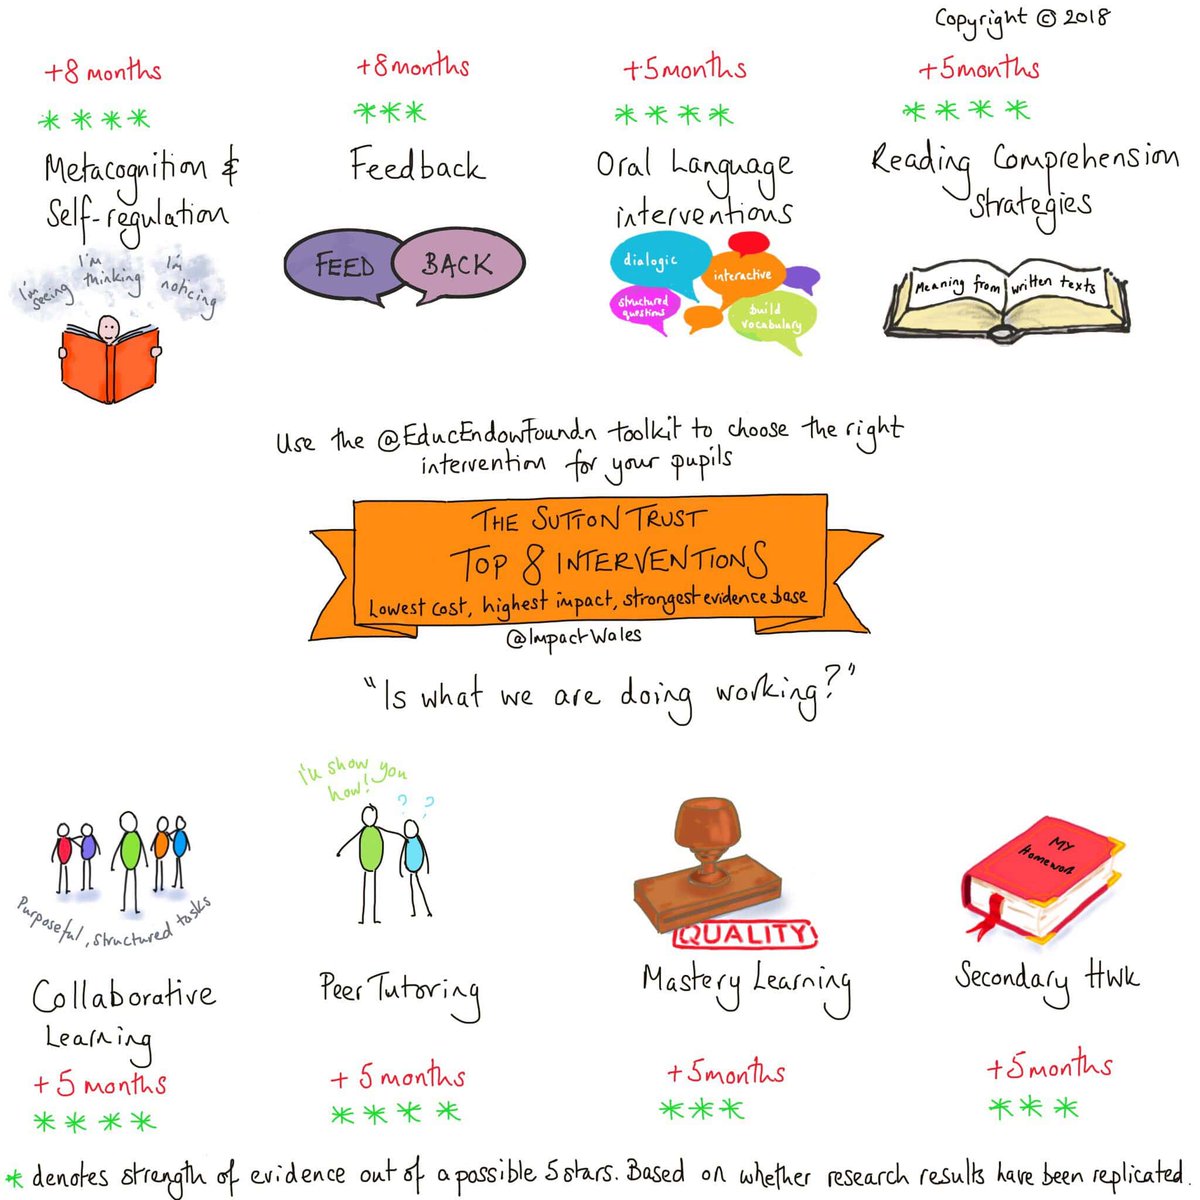 Copyright © 2018
+8 months
****
Metacognition &
Self-regulation
I'm seeing
I'm thinking
I'm noticing
+8 months
***
Feedback
FEED BACK
+5 months
****
Oral Language
interventions
dialogic
interactive
structured
questions
build
vocabulary
+5 months
****
Reading Comprehension
Strategies
Meaning from written texts
Use the @EducEndowFoundn toolkit to choose the right
intervention for your pupils
THE SUTTON TRUST
TOP 8 INTERVENTIONS
Lowest cost, highest impact, strongest evidence base
@ImpactWales
"Is what we are doing working?"
Purposeful, structured tasks
Collaborative
Learning
+5 months
****
I'll show you
how!
? ?
Peer Tutoring
+5 months
****
QUALITY
Mastery Learning
+5 months
***
My
Homework
Secondary Hwk
+5 months
***
* denotes strength of evidence out of a possible 5 stars. Based on whether research results have been replicated.